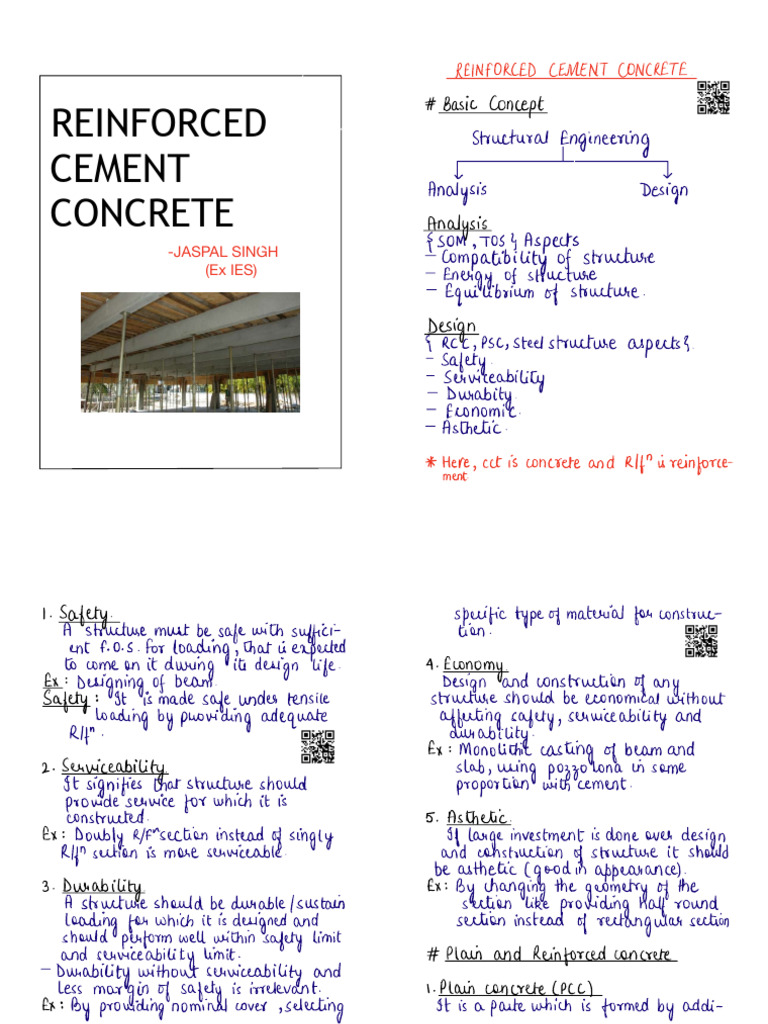 REINFORCED
CEMENT
CONCRETE
-JASPAL SINGH
(Ex IES)
REINFORCED CEMENT CONCRETE
# Basic Concept
Structural Engineering
Analysis Design
Analysis
{SOM, TOS} Aspects
- Compatibility of structure
- Energy of structure
- Equilibrium of structure.
Design
{RCC, PSC, steel structure aspects}.
- Safety.
- Serviceability
- Durabity.
- Economic.
- Asthetic.
* Here, cct is concrete and R/fⁿ is reinforce-
ment
1. Safety.
A structure must be safe with suffici-
ent f.o.s. for loading, that is expected
to come on it during its design life.
Ex: Designing of beam.
Safety: It is made safe under tensile
loading by providing adequate
R/fⁿ.
2. Serviceability
It signifies that structure should
provide service for which it is
constructed.
Ex: Doubly R/Fⁿ section instead of singly
R/fⁿ section is more serviceable.
3. Durability
A structure should be durable/sustain
loading for which it is designed and
should perform well within safety limit
and serviceability limit.
- Durability without serviceability and
less margin of safety is irrelevant.
Ex: By providing nominal cover, selecting
specific type of material for construc-
tion.
4. Economy
Design and construction of any
structure should be economical without
affecting safety, serviceability and
durability.
Ex: Monolithic casting of beam and
slab, using pozzolona in some
proportion with cement.
5. Asthetic.
If large investment is done over design
and construction of structure it should
be asthetic (good in appearance).
Ex: By changing the geometry of the
section like providing half round
section instead of rectangular section
# Plain and Reinforced concrete
1. Plain concrete (PCC)
It is a paste which is formed by addi-